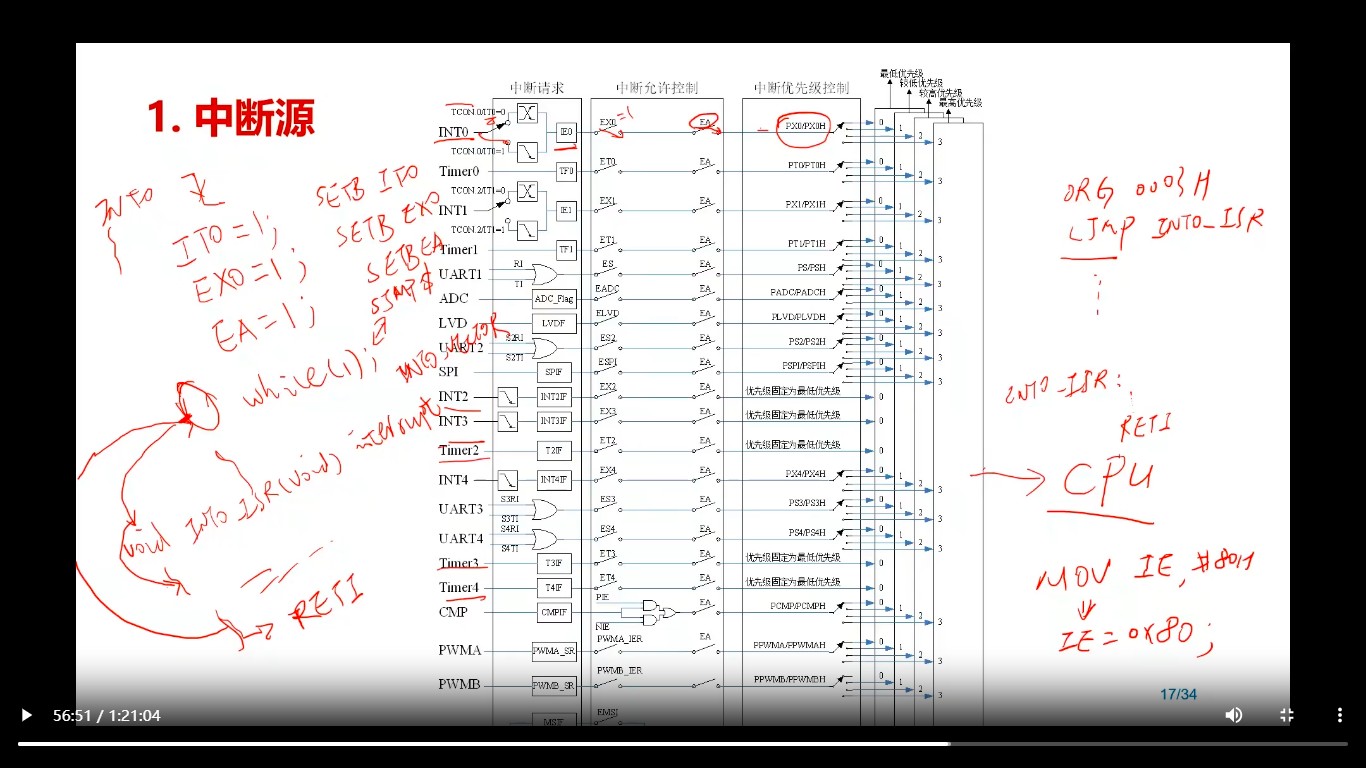 1. 中断源
中断请求 中断允许控制 中断优先级控制
最低优先级
较低优先级
较高优先级
最高优先级
TCON.0/IT0=0
INT0 IE0 EX0 =1 EA PX0/PX0H 0 1 2 3
TCON.0/IT0=1
Timer0 TF0 ET0 EA PT0/PT0H 0 1 2 3
TCON.2/IT1=0
INT1 IE1 EX1 EA PX1/PX1H 0 1 2 3
TCON.2/IT1=1
Timer1 TF1 ET1 EA PT1/PT1H 0 1 2 3
UART1 RI TI ES EA PS/PSH 0 1 2 3
ADC ADC_Flag EADC EA PADC/PADCH 0 1 2 3
LVD LVDF ELVD EA PLVD/PLVDH 0 1 2 3
UART2 S2RI S2TI ES2 EA PS2/PS2H 0 1 2 3
SPI SPIF ESPI EA PSPI/PSPIH 0 1 2 3
INT2 INT2IF EX2 EA 优先级固定为最低优先级 0
INT3 INT3IF EX3 EA 优先级固定为最低优先级 0
Timer2 T2IF ET2 EA 优先级固定为最低优先级 0
INT4 INT4IF EX4 EA PX4/PX4H 0 1 2 3
UART3 S3RI S3TI ES3 EA PS3/PS3H 0 1 2 3
UART4 S4RI S4TI ES4 EA PS4/PS4H 0 1 2 3
Timer3 T3IF ET3 EA 优先级固定为最低优先级 0
Timer4 T4IF ET4 EA 优先级固定为最低优先级 0
CMP CMPIF PIE NIE EA PCMP/PCMPH 0 1 2 3
PWMA PWMA_SR PWMA_IER EA PPWMA/PPWMAH 0 1 2 3
PWMB PWMB_SR PWMB_IER PPWMB/PPWMBH 0 1 2 3
EMSI
INT0
IT0=1; SETB IT0
EX0=1; SETB EX0
EA=1; SETB EA
SJMP $
while(1);
void INT0_ISR(void) interrupt INT0_VECTOR
RETI
ORG 0003H
LJMP INT0_ISR
INT0_ISR:
RETI
CPU
MOV IE, #80H
IE=0x80;
17/34
56:51 / 1:21:04